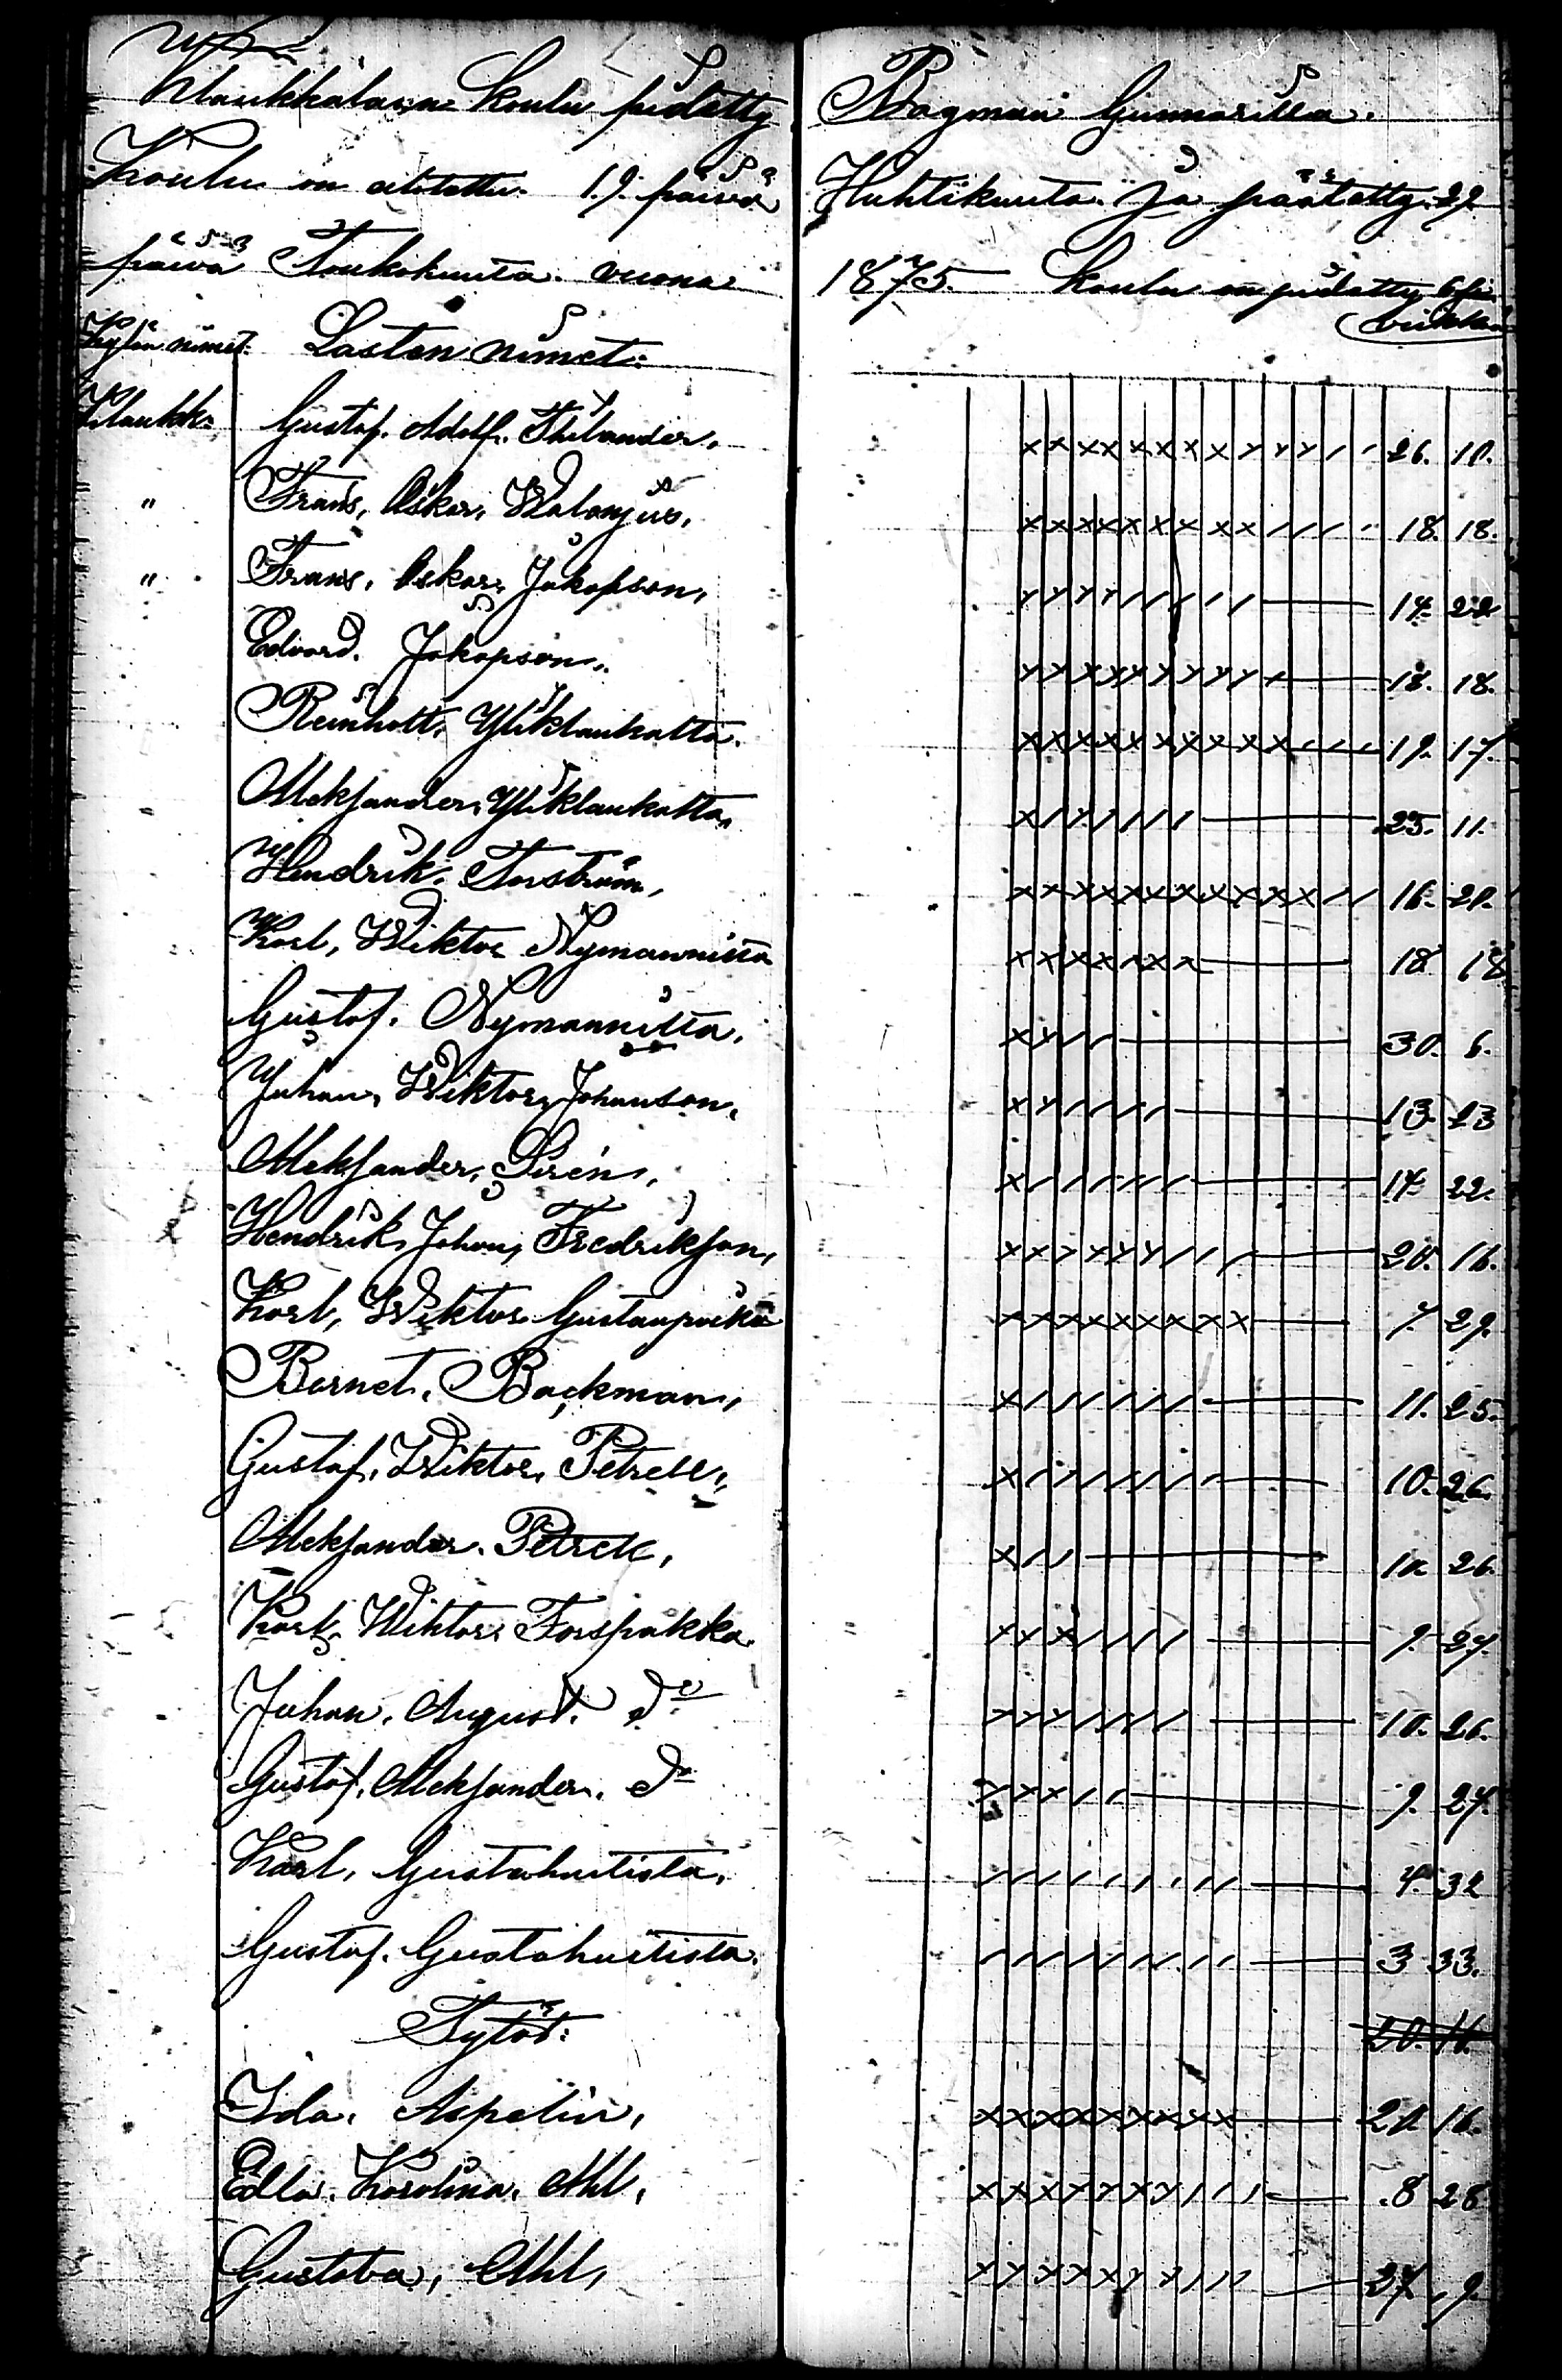 Klaukkalana Koulu pidetty Bagman Gunnarilla.
Koulu on alotettu 19. päivä Huhtikuuta ja päätetty 22
päivä Toukokuuta vuona 1875. Koulu on pidetty 6
Kylän nimet. Lasten nimet:
Klaukk. Gustaf. Adolf. Thilander. 26. 10.
" Frans, Oskar, Walenjus, 18. 18.
" Frans, Oskar, Jakopson, 14. 22
Edvard. Jakopson. 18. 18.
Reinholt, Yliklaukatta. 19. 17.
Aleksander, Yliklaukatta, 25. 11.
Hendrik. Forström, 16. 20.
Karl, Wiktor Nymannista 18 18
Gustaf. Nymannista. 30. 6.
Juhan, Wiktor, Johanson, 13. 23
Aleksander, Siren, 14. 22.
Hendrik, Johan, Fredrikson, 20. 16.
Karl, Wiktor 7. 29.
Bernet. Backman, 11. 25.
Gustaf, Wiktor, Petrell, 10. 26.
Aleksander. Petrell, 10. 26.
Karl, Wihtor. Forspakka. 9. 27.
Juhan. August. do 10. 26.
Gustaf, Aleksander. do 9. 27.
Karl, Gustahuitista, 4. 32
Gustaf. Gustahuitista. 3 33.
Tytöt: 20. 16.
Ida. Aspelin, 20. 16.
Edla. Karolina. Ahl, 8 28
Gustava, Ahl, 27 9